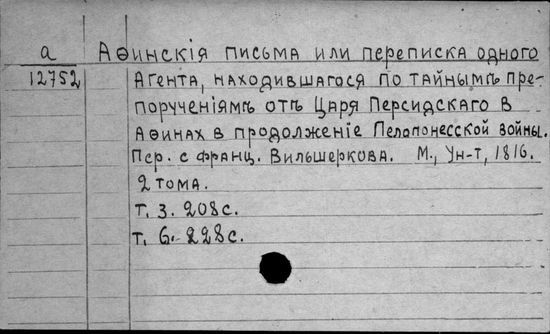 а Аѳинскія письма или переписка одного
12752 Агента, находившагося по тайнымъ пре-
порученіямъ отъ Царя Персидскаго в
Аѳинах в продолженіе Пелопонесской войны.
Пер. с франц. Вильшеркова. М., Ун-т, 1816.
2 тома.
т. 3. 208с.
т. 6. 228с.